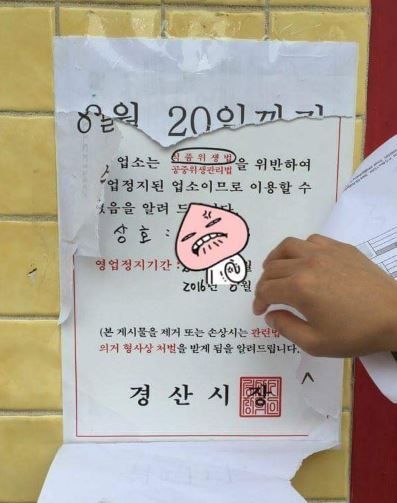 8월 20일까지
업소는 식품위생법
공중위생관리법 을 위반하여
업정지된 업소이므로 이용할 수
없음을 알려 드
상호 :
영업정지기간 : 월
2016 월
(본 게시물을 제거 또는 손상시는 관련법
의거 형사상 처벌을 받게 됨을 알려드립니다.
경산시장